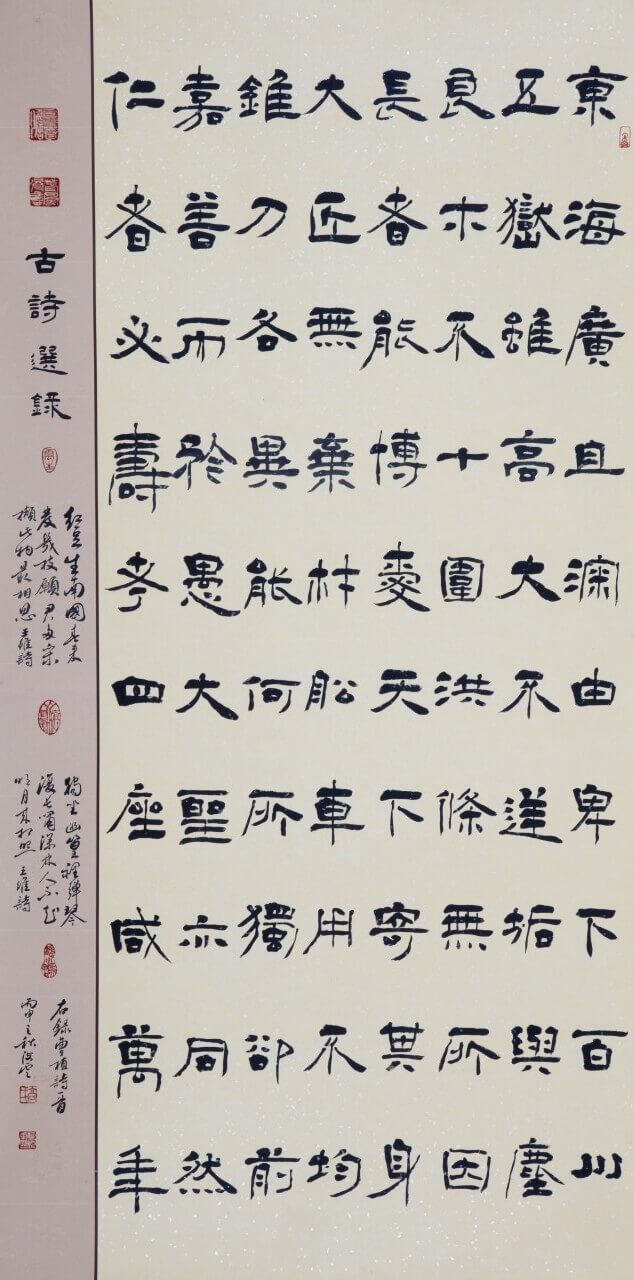 東海廣且深由卑下百川
五嶽雖高大不逆垢與塵
良木不十圍洪條無所因
長者能博愛天下寄其身
大匠無棄材船車用不均
錐刀各異能何所獨卻前
嘉善而矜愚大聖亦同然
仁者必壽考四座咸萬年
古詩選錄
紅豆生南國春來
發幾枝願君多采
擷此物最相思王維詩
獨坐幽篁裡彈琴
復長嘯深林人不知
明月來相照王維詩
右錄曹植詩一首
丙申之秋